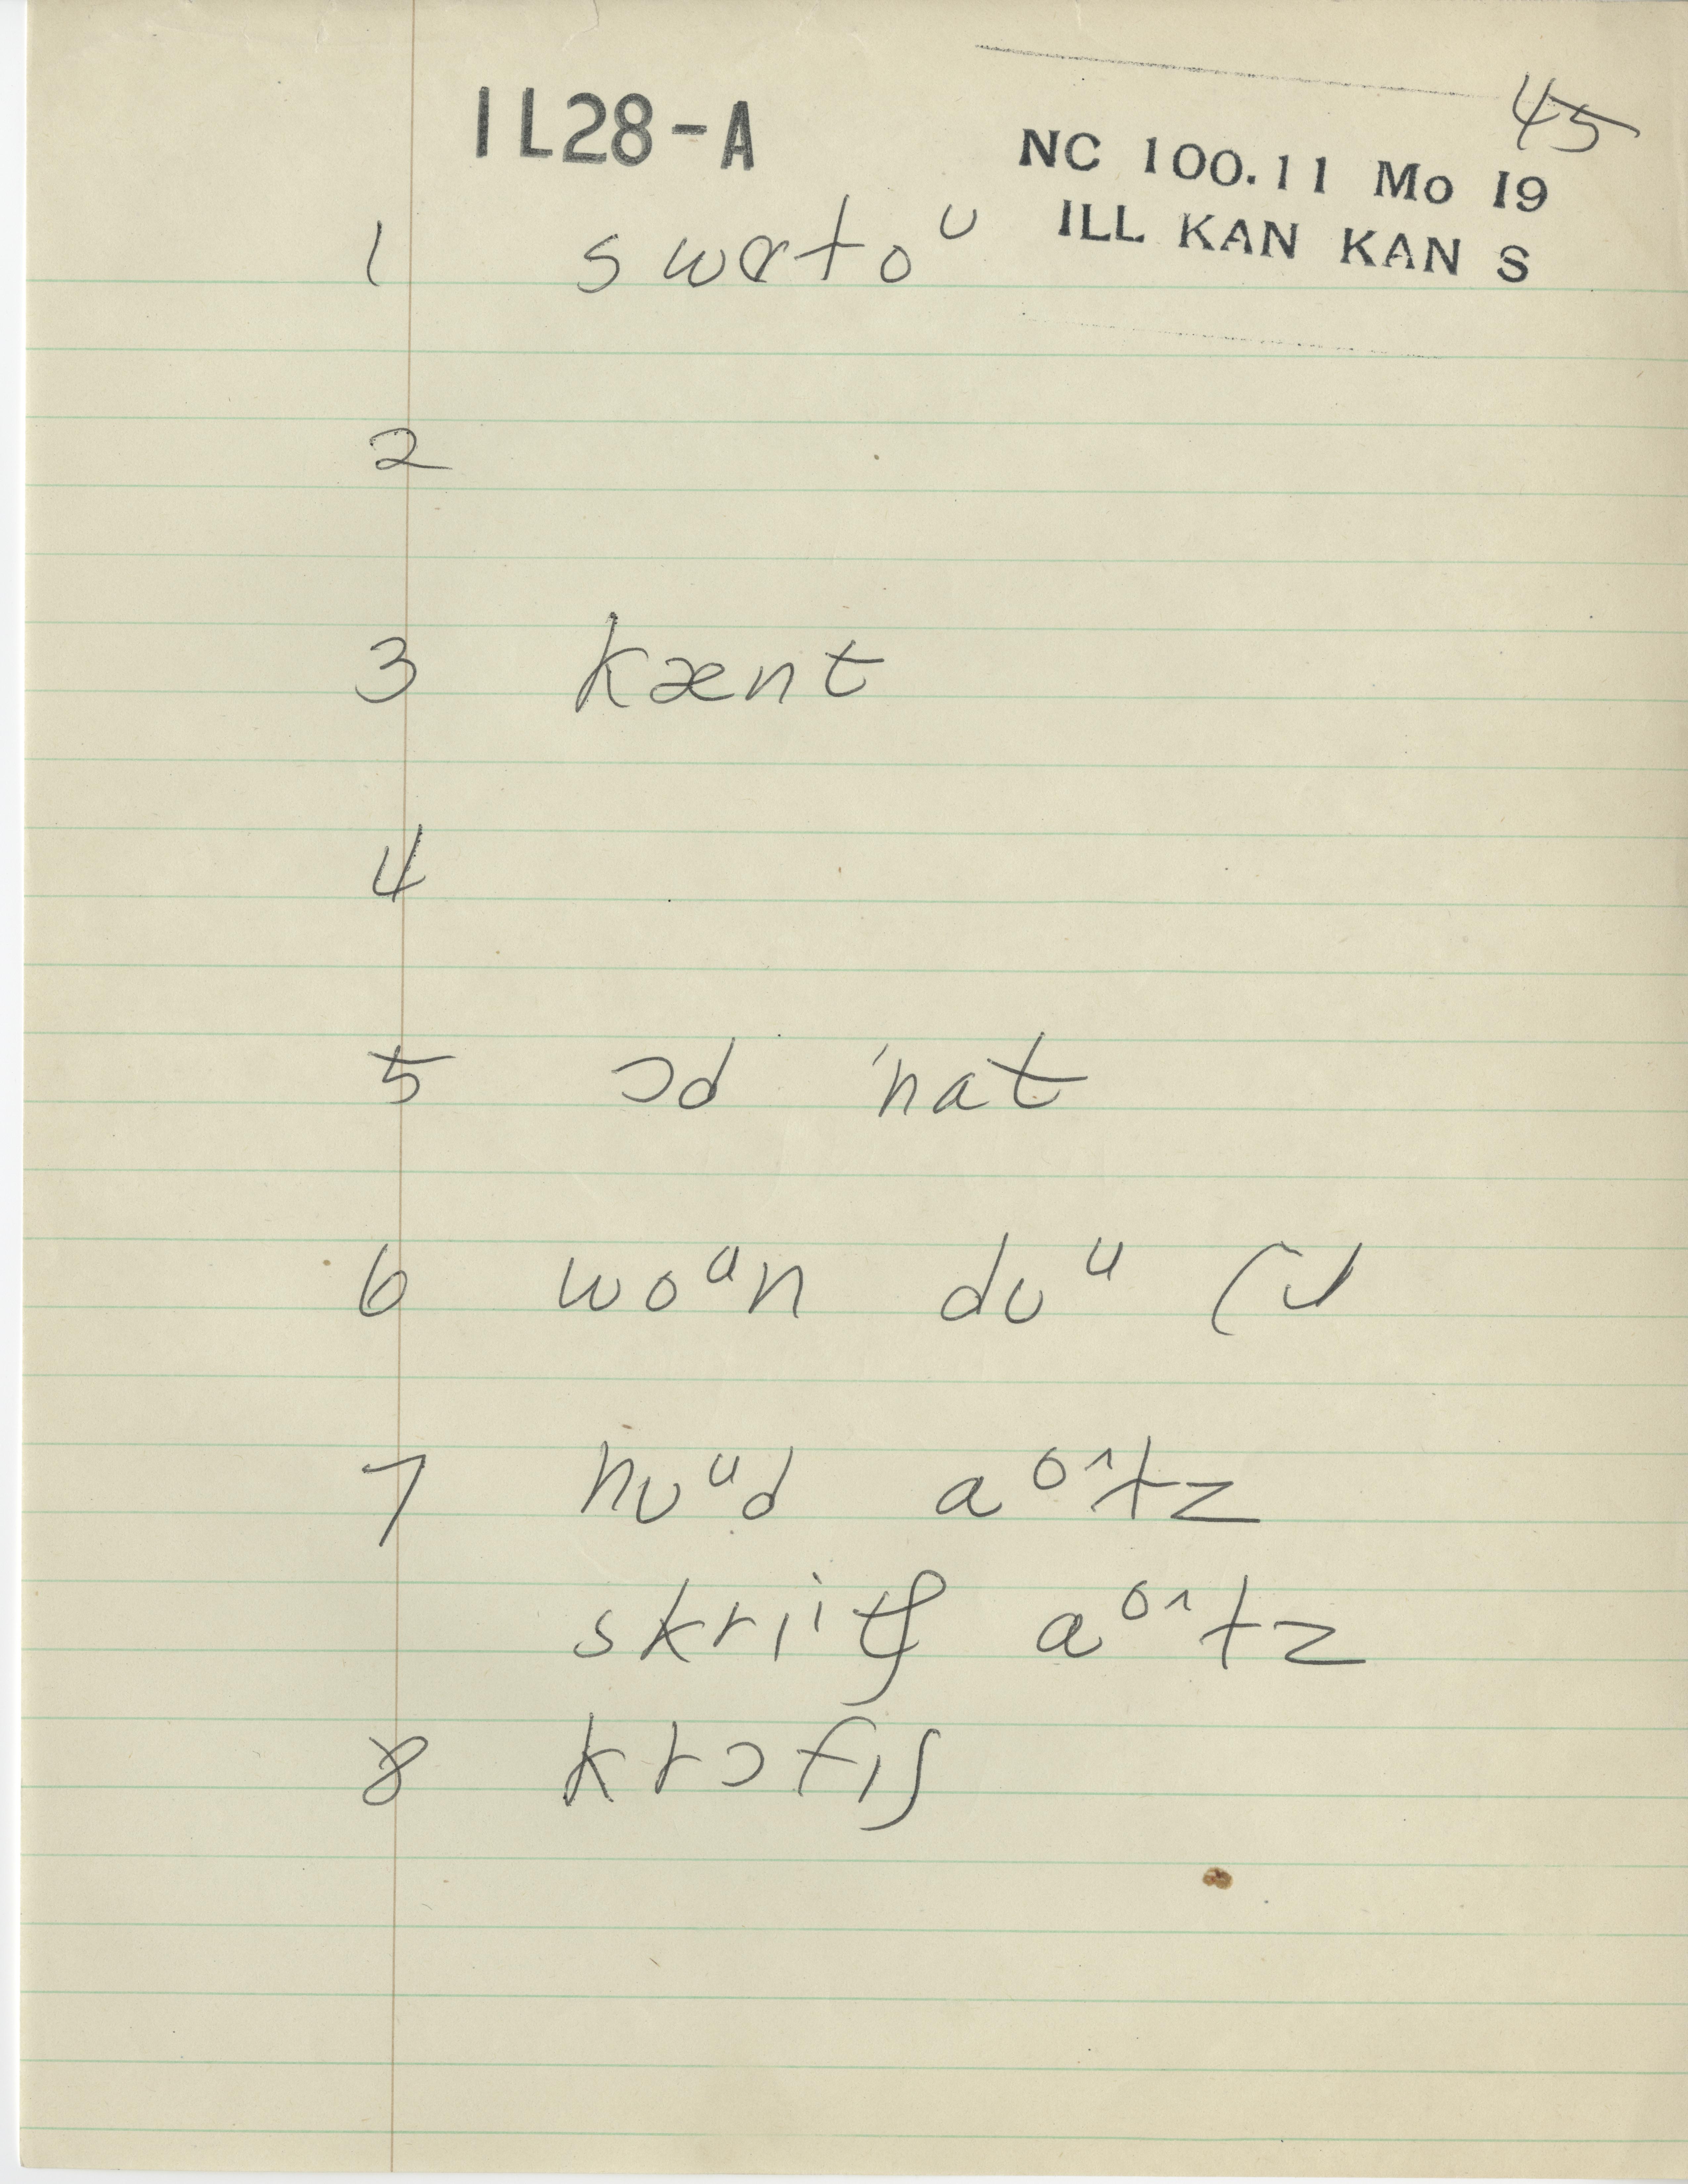 45
IL28-A
NC 100.11 Mo 19
ILL KAN KAN S
1 swɑtoᶷ
2
3 kænt
4
5 ɔd 'nat
6 woᵘn duᵘ ɪt
7 huᵘd aᵒᶺtz
skriⁱtʃ aᵒᶺtz
8 krɔfɪʃ